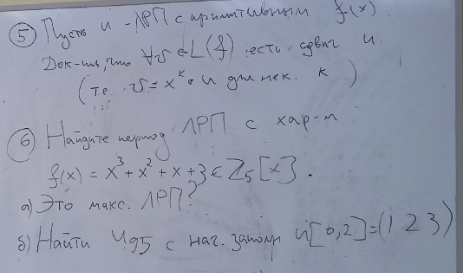 ⑤ Пусть u - ЛРП с примитивным f(x)
Док-ть, что ∀v ∈ L(f) есть сдвиг u
(т.е. v = x^k · u для нек. k)
⑥ Найдите период ЛРП с хар-м
f(x) = x^3 + x^2 + x + 3 ∈ Z_5[x].
а) Это макс. ЛРП?
б) Найти u_95 с нач. заполн u[0,2] = (1 2 3)